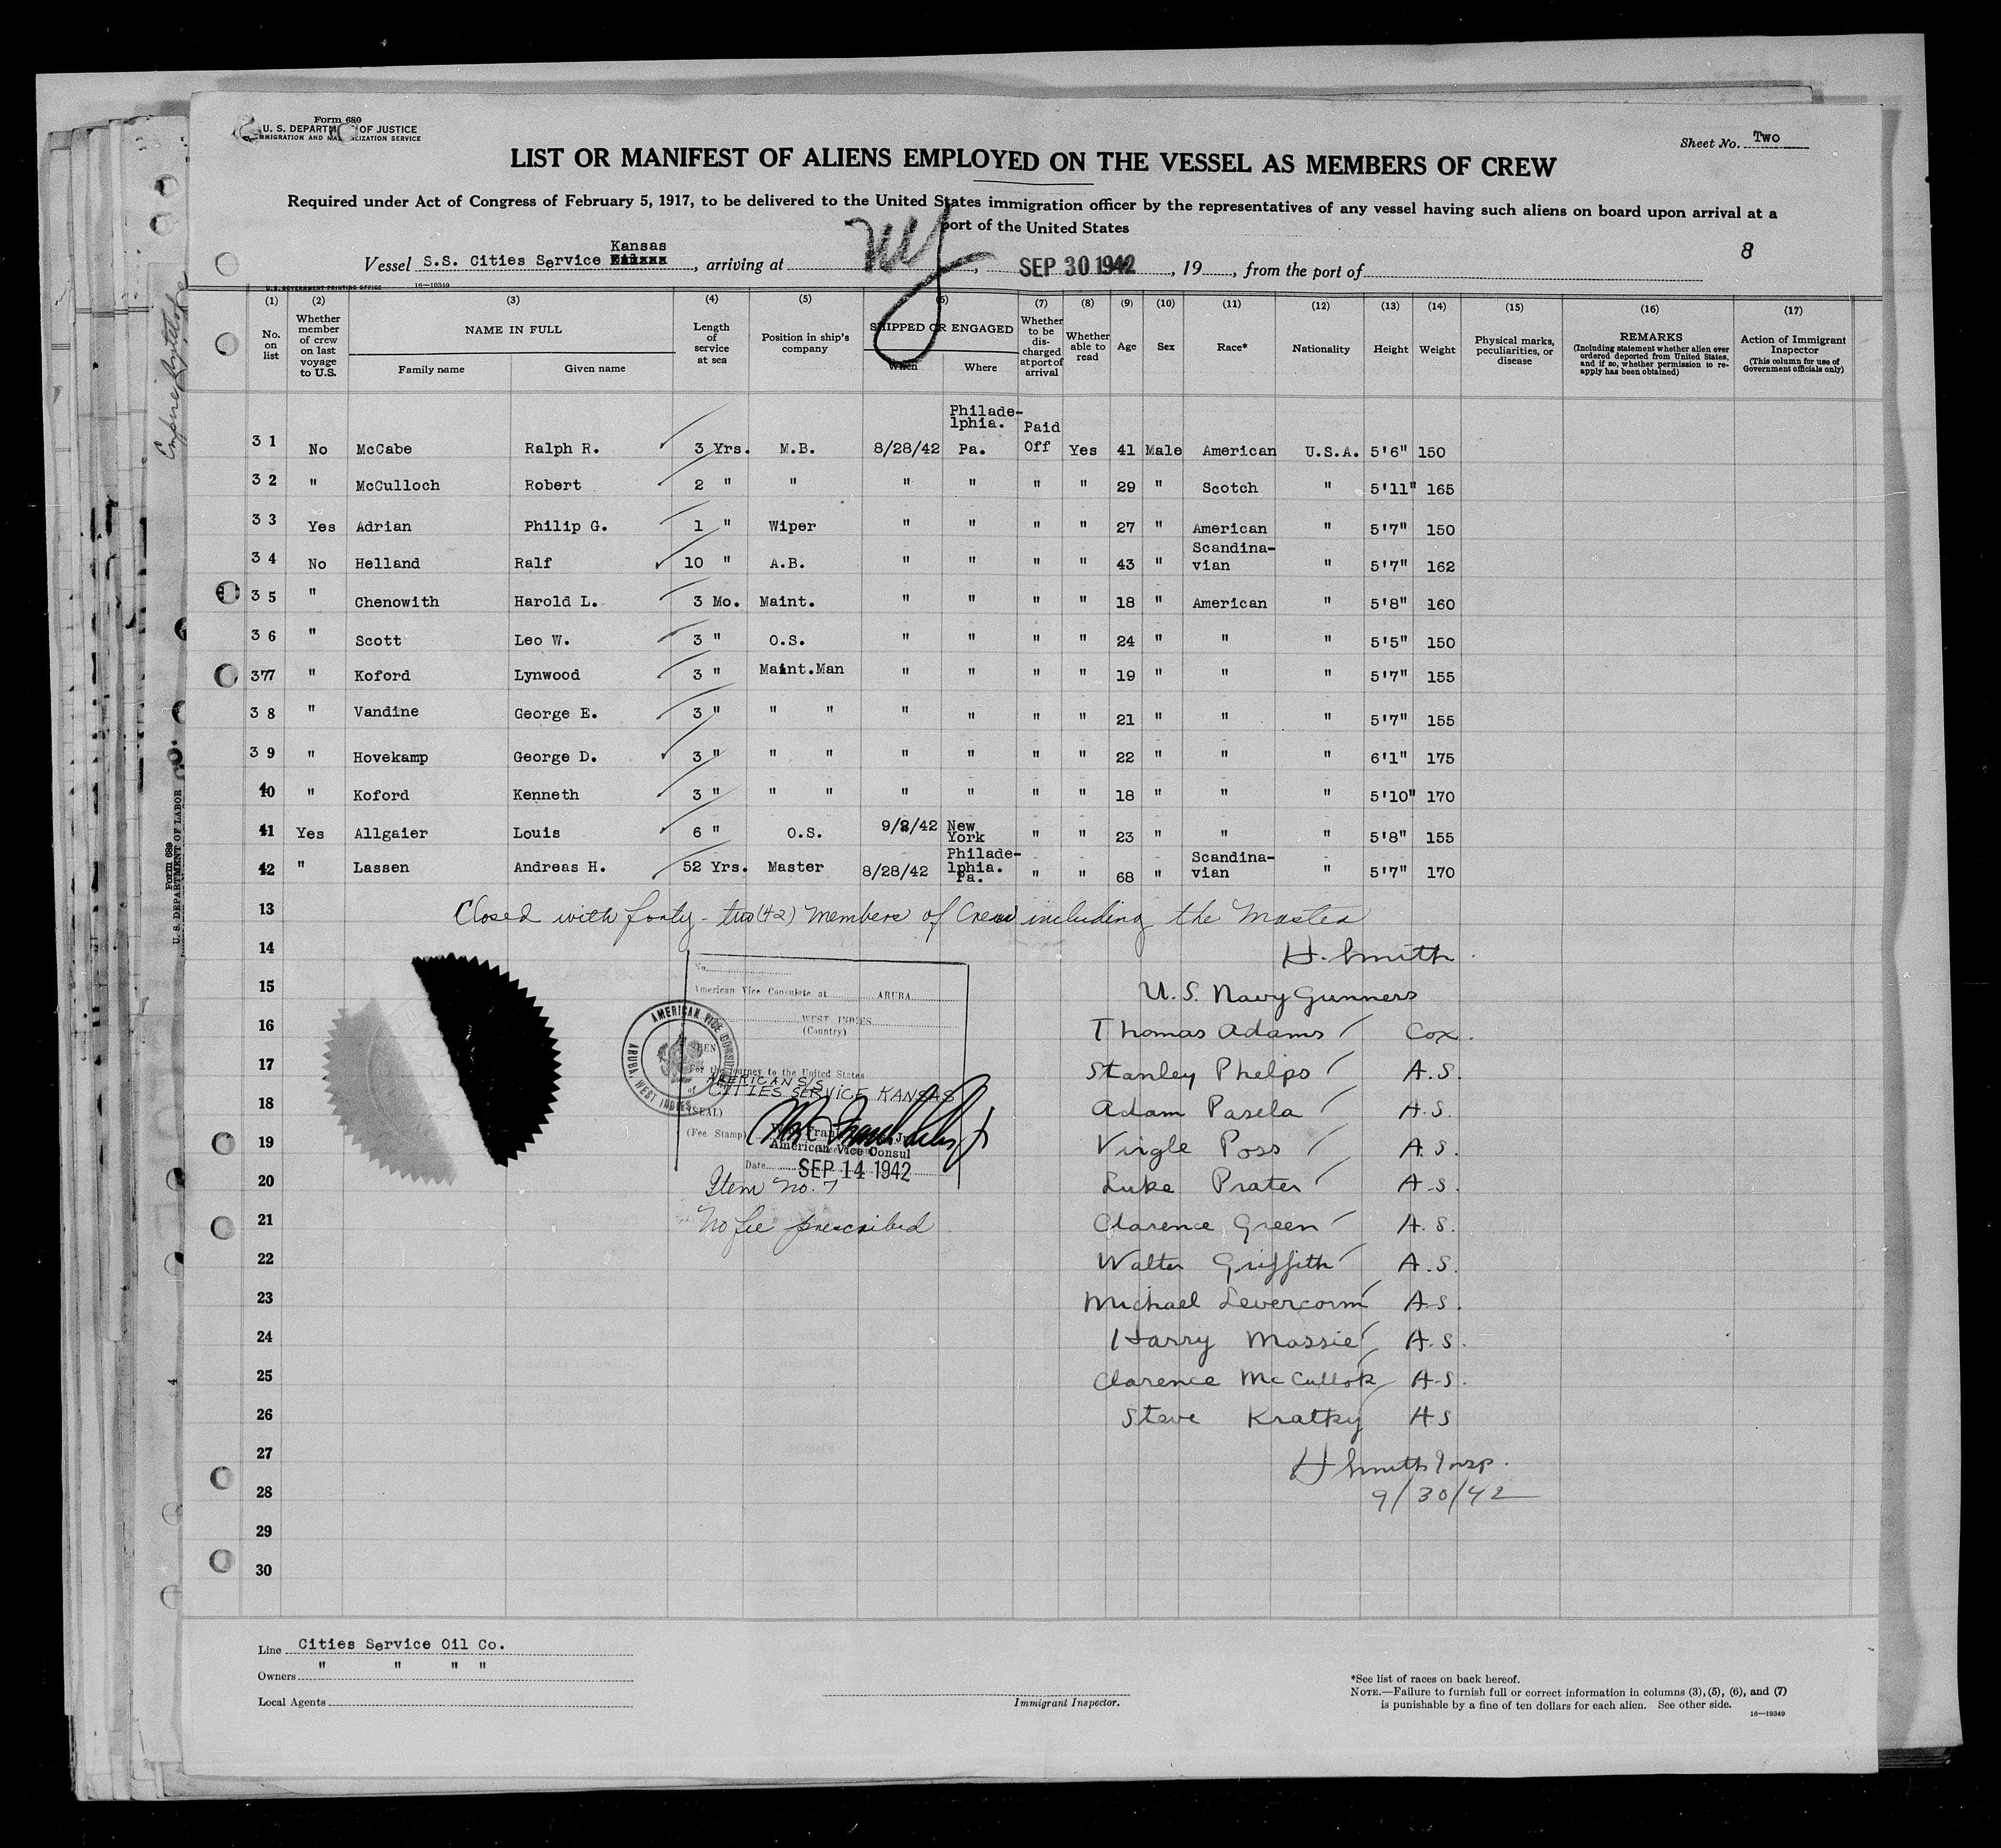 Form 680
U. S. DEPARTM OF JUSTICE
IMMIGRATION AND NA LIZATION SERVICE
Sheet No. Two
LIST OR MANIFEST OF ALIENS EMPLOYED ON THE VESSEL AS MEMBERS OF CREW
Required under Act of Congress of February 5, 1917, to be delivered to the United States immigration officer by the representatives of any vessel having such aliens on board upon arrival at a
port of the United States
8
Kansas
Vessel S.S. Cities Service , arriving at NY , SEP 30 1942 , 19 , from the port of
U.S. GOVERNMENT PRINTING OFFICE 16—19349
(1) (2) (3) (4) (5) (6) (7) (8) (9) (10) (11) (12) (13) (14) (15) (16) (17)
No. on list Whether member of crew on last voyage to U.S. NAME IN FULL Family name Given name Length of service at sea Position in ship's company SHIPPED OR ENGAGED When Where Whether to be discharged at port of arrival Whether able to read Age Sex Race* Nationality Height Weight Physical marks, peculiarities, or disease REMARKS (Including statement whether alien ever ordered deported from United States, and if so, whether permission to reapply has been obtained) Action of Immigrant Inspector (This column for use of Government officials only)
31 No McCabe Ralph R. 3 Yrs. M.B. 8/28/42 Philade-lphia. Pa. Paid Off Yes 41 Male American U.S.A. 5'6" 150
32 " McCulloch Robert 2 " " " " " " 29 " Scotch " 5'11" 165
33 Yes Adrian Philip G. 1 " Wiper " " " " 27 " American " 5'7" 150
34 No Helland Ralf 10 " A.B. " " " " 43 " Scandina-vian " 5'7" 162
35 " Chenowith Harold L. 3 Mo. Maint. " " " " 18 " American " 5'8" 160
36 " Scott Leo W. 3 " O.S. " " " " 24 " " " 5'5" 150
377 " Koford Lynwood 3 " Maint.Man " " " " 19 " " " 5'7" 155
38 " Vandine George E. 3 " " " " " " " 21 " " " 5'7" 155
39 " Hovekamp George D. 3 " " " " " " " 22 " " " 6'1" 175
40 " Koford Kenneth 3 " " " " " " " 18 " " " 5'10" 170
41 Yes Allgaier Louis 6 " O.S. 9/2/42 New York " " 23 " " " 5'8" 155
42 " Lassen Andreas H. 52 Yrs. Master 8/28/42 Philade-lphia. Pa. " " 68 " Scandina-vian " 5'7" 170
13 Closed with forty-two (42) members of Crew including the Master
14 H. Smith
15 U.S. Navy Gunners
16 Thomas Adams Cox.
17 Stanley Phelps A.S.
18 Adam Pasela A.S.
19 Virgle Poss A.S.
20 Luke Prater A.S.
21 Clarence Green A.S.
22 Walter Griffith A.S.
23 Michael Levercorm A.S.
24 Harry Massie A.S.
25 Clarence McCullok A.S.
26 Steve Kratky A.S
27 H Smith Insp.
28 9/30/42
29
30
No.
American Vice Consulate at ARUBA
WEST INDIES
(Country)
SEEN
For the journey to the United States
AMERICAN S/S
of CITIES SERVICE KANSAS
(SEAL)
(Fee Stamp)
American Vice Consul
Date SEP 14 1942
AMERICAN VICE CONSUL
ARUBA, WEST INDIES
Item No. 7
No fee prescribed
Line Cities Service Oil Co.
Owners " " " "
Local Agents
Immigrant Inspector.
*See list of races on back hereof.
NOTE.—Failure to furnish full or correct information in columns (3), (5), (6), and (7)
is punishable by a fine of ten dollars for each alien. See other side.
16—19349
Form 689
U. S. DEPARTMENT OF LABOR
4